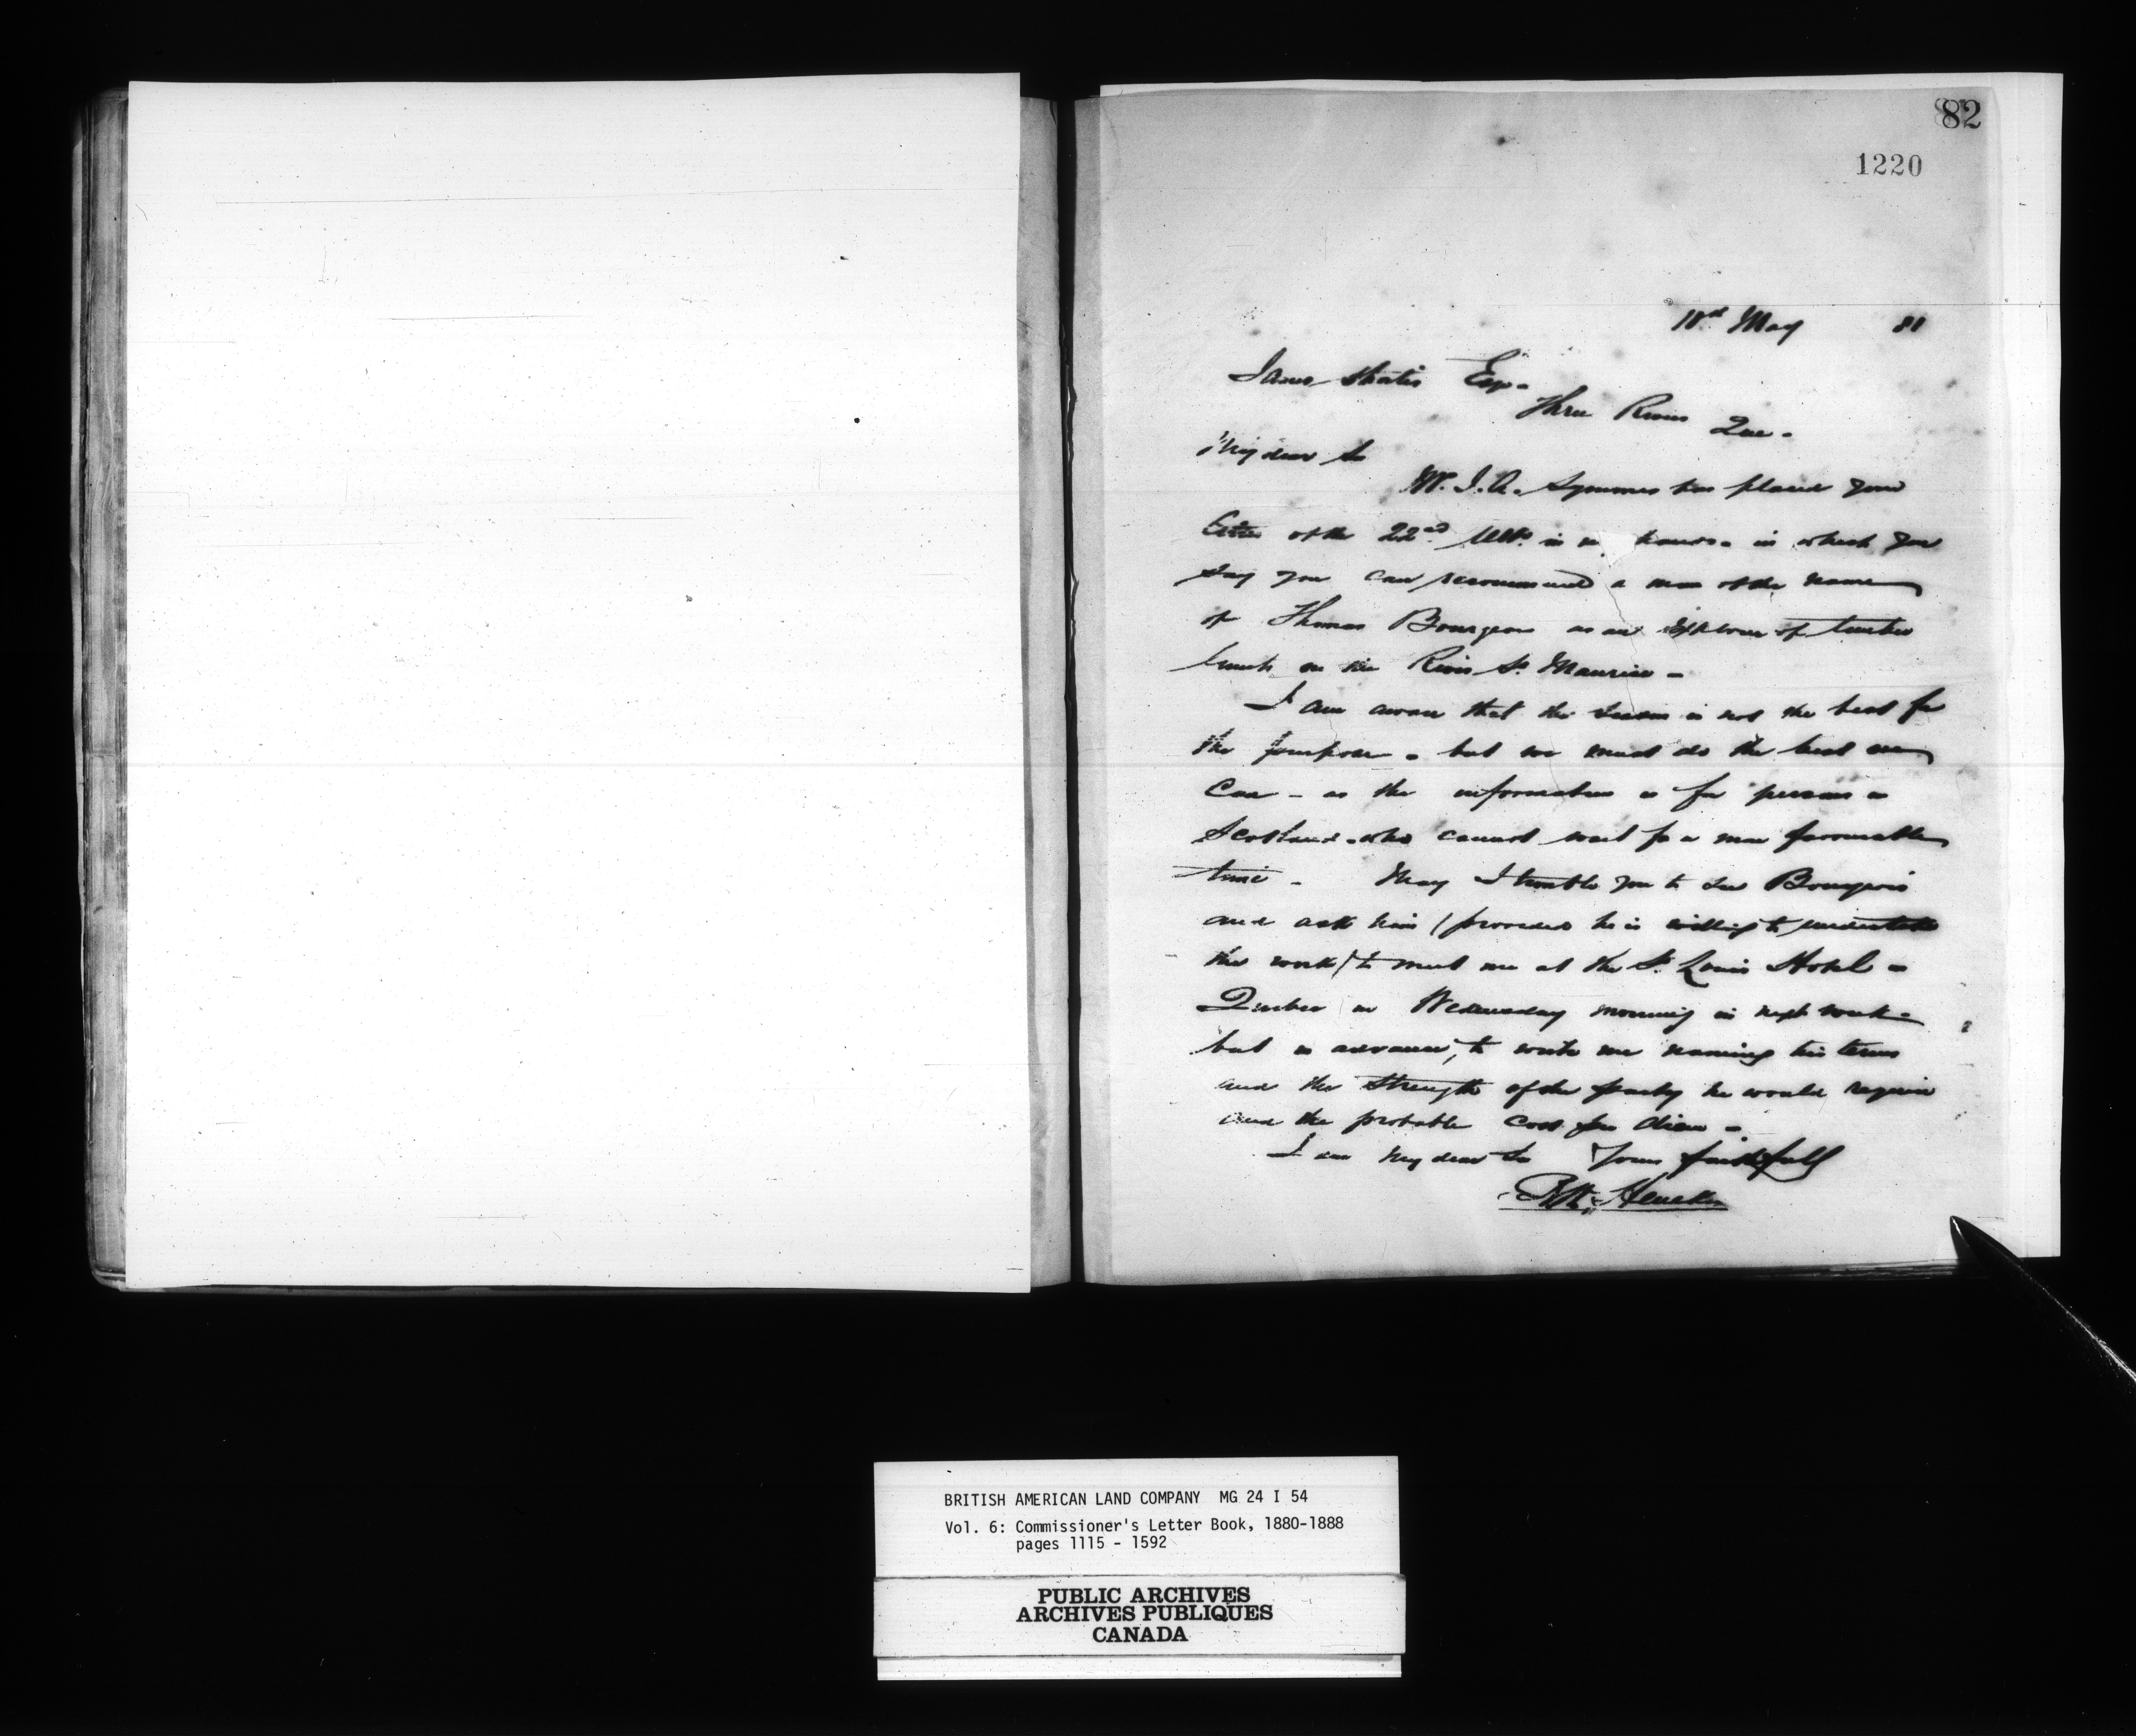 82
1220
May 81
James Esq.
Three Rivers Que.
My dear Sir
Mr. J. A. Symmes has placed your
letter of the 22nd Ulto. in my hands. in which you
say you can recommend a man of the name
of Thomas Bourgeois as an Explorer of timber
limits on the River St. Maurice -
I am aware that the season is not the best for
the purpose - but we must do the best we
can - as the information is for persons in
Scotland who cannot wait for a more favourable
time - May I trouble you to see Bourgeois
and ask him (provided he is willing to undertake
the work) to meet me at the St. Louis Hotel -
Quebec on Wednesday morning in next week -
but in advance, to write me naming his terms
and the strength of the party he would require
and the probable cost per diem -
I am My dear Sir Yours faithfully
R. W. Heneker
BRITISH AMERICAN LAND COMPANY MG 24 I 54
Vol. 6: Commissioner's Letter Book, 1880-1888
pages 1115 - 1592
PUBLIC ARCHIVES
ARCHIVES PUBLIQUES
CANADA